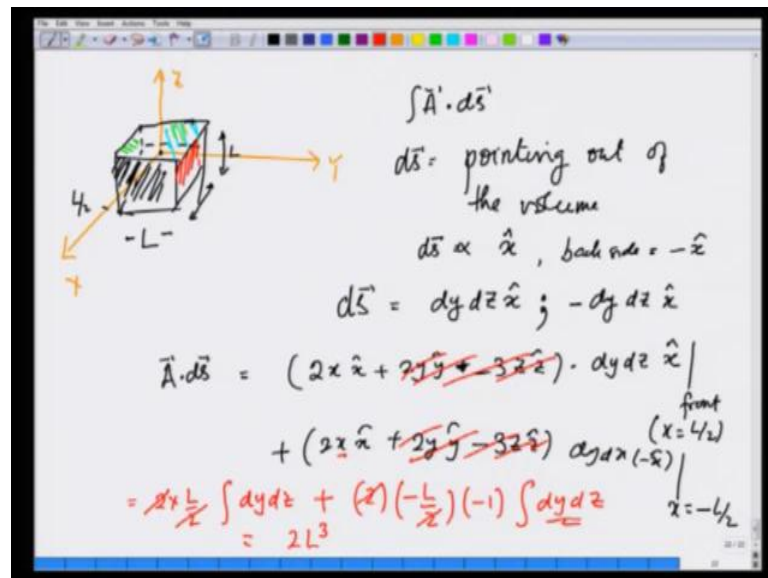 File Edit View Insert Actions Tools Help
Z
Y
X
L/2
- L -
L
∫A⃗·ds⃗
ds⃗ = pointing out of
the volume
ds⃗ ∝ x̂, back side = -x̂
ds⃗ = dy dz x̂ ; - dy dz x̂
A⃗·ds⃗ = (2x x̂ + 2y ŷ - 3z ẑ) · dy dz x̂ |
front
(x = L/2)
+ (2x x̂ + 2y ŷ - 3z ẑ) dy dx (-x̂) |
x = -L/2
= 2 × L/2 ∫ dy dz + (2)(-L/2)(-1) ∫ dy dz
= 2L³